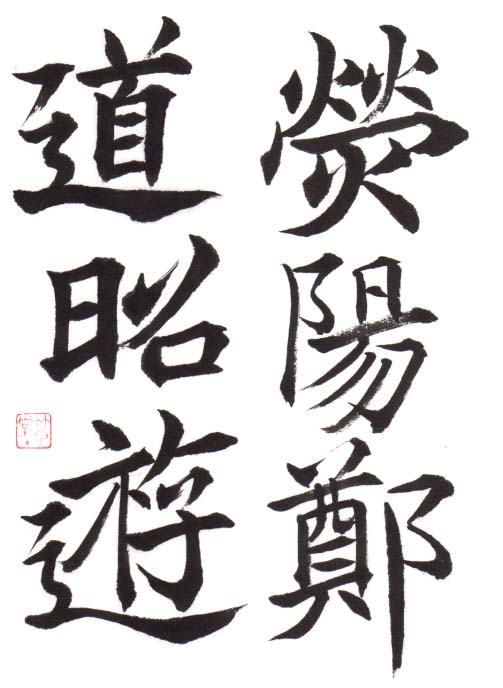 熒陽鄭
道昭遊